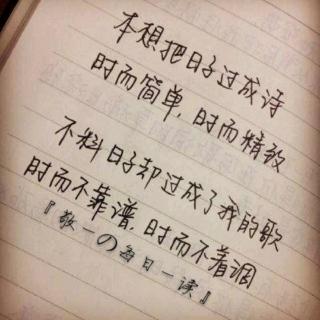 本想把日子过成诗
时而简单，时而精致
不料日子却过成了我的歌
时而不靠谱，时而不着调
『敬一の每日一读』